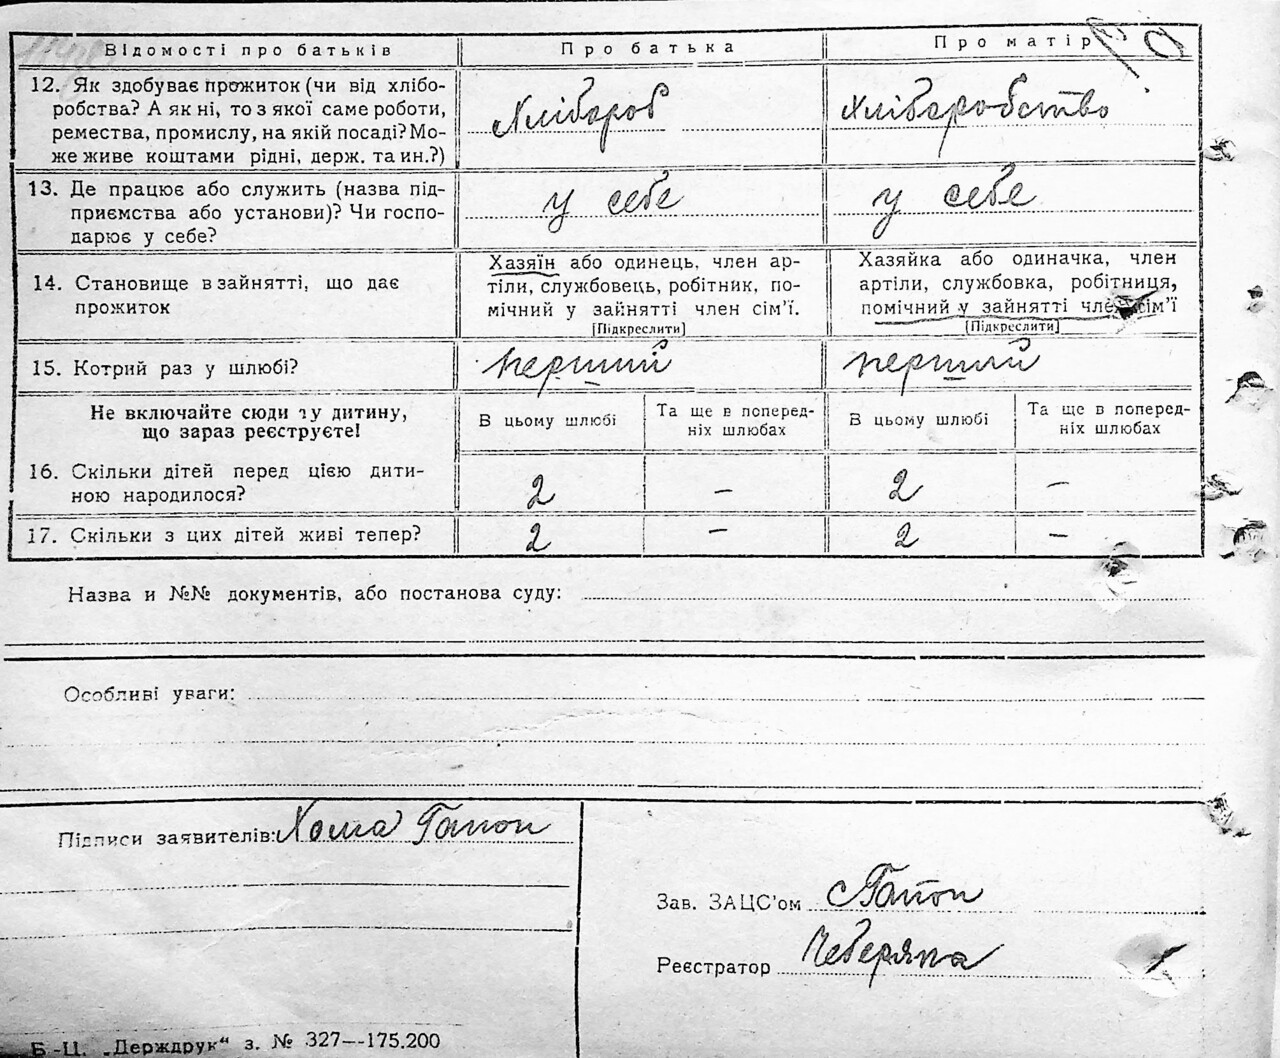 Відомості про батьків Про батька Про матір
12. Як здобуває прожиток (чи від хлібо- Хлібороб Хліборобство
робства? А як ні, то з якої саме роботи,
ремества, промислу, на якій посаді? Мо-
же живе коштами рідні, держ. та ин.?)
13. Де працює або служить (назва під- у себе у себе
приємства або установи)? Чи госпо-
дарює у себе?
14. Становище в зайнятті, що дає
прожиток
Хазяїн або одинець, член ар-
тіли, службовець, робітник, по-
мічний у зайнятті член сім'ї.
[Підкреслити]
Хазяйка або одиначка, член
артіли, службовка, робітниця,
помічний у зайнятті член сім'ї
[Підкреслити]
15. Котрий раз у шлюбі? перший перший
Не включайте сюди ту дитину,
що зараз реєструєте!
В цьому шлюбі
Та ще в поперед-
ніх шлюбах
В цьому шлюбі
Та ще в поперед-
ніх шлюбах
16. Скільки дітей перед цією дити-
ною народилося? 2 – 2 –
17. Скільки з цих дітей живі тепер? 2 – 2 –
Назва и №№ документів, або постанова суду:
Особливі уваги:
Підписи заявителів: Хома Гапон
Зав. ЗАЦС'ом Гапон
Реєстратор
Б.-Ц. „Держдрук" з. № 327—175.200